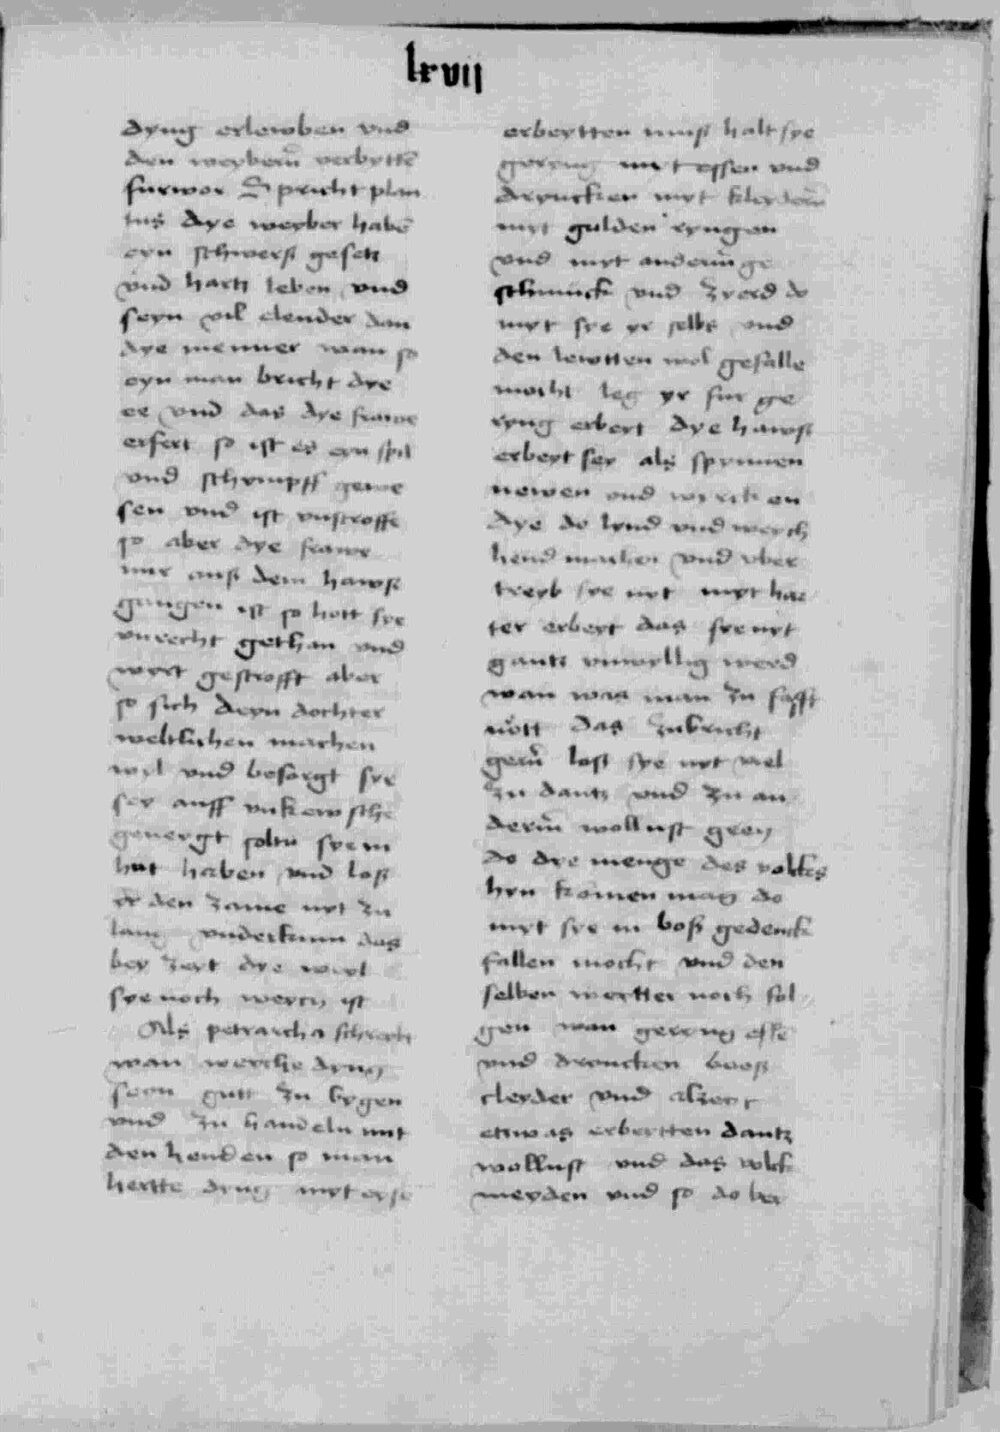 lxvij
dyng erlewben vnd
den weybern̄ verbyttē
furwor Spricht plau
tus dye weyber habē
eyn schwerß gesetz
vnd hartz leben vnd
seyn vil elender dan
dye menner wan so
eyn man bricht dye
ee vnd das dye frawe
erfert so ist es eyn spil
vnd schympff gewe
sen vnd ist vnstroffe
so aber dye frawe
nur auß dem hawse
gangen ist so hott sye
vnrecht gethan vnd
wyrt gestrofft aber
so sich deyn dochter
weltlichen machen
wyl vnd besorgt sye
sey auff vnkewsche
geneygt soltu sye in
hut haben vnd loß
den zame nyt zu
lang vnderkumi das
bey zeyt dye weyl
sye noch weych ist
Als petrarcha schreybt
wan weyche dyng
seyn gutt zu bygen
vnd zu handeln mit
den henden so man
hertte dyng myt eyse
erbeytten muß halt sye
geryng myt essen vnd
dryncken myt kleydern̄
myt gulden ryngen
vnd myt anderm̄ ge
schmuck vnd zyerd do
myt sye yr selbs vnd
den lewtten wol gefalle
mocht leg yr fur ge
ryng erbeyt dye hawß
erbeyt sey als spynnen
newen vnd wyrcken
dye do lynd vnd weych
hend machen vnd vber
treyb sye nyt myt har
ter erbeyt das sye nyt
gantz vnwyllig werd
wan was man zu fafft
nött das zubricht
gern̄ loß sye nyt viel
zu dantz vnd zu an
derm̄ wollust geen
do dye menge des volkes
hyn komen mag do
myt sye in boß gedenck
fallen mocht vnd den
selben weytter noch fol
gen wan geryng essē
vnd dryncken booß
cleyder vnd alzeyt
ettwas erbeytten dantz
wollust vnd das volk
meyden vnd so do bey